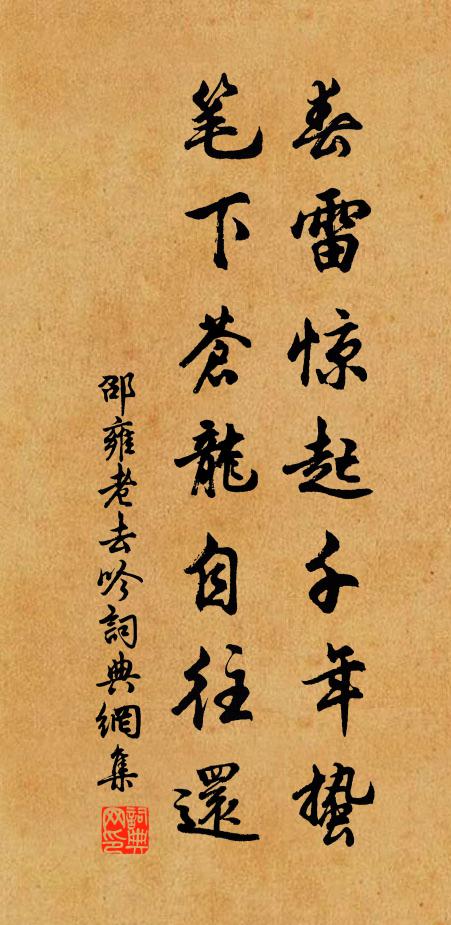 春雷惊起千年蛰
笔下苍龍自往還
邵雍老去吟詞典網集
詞典网印